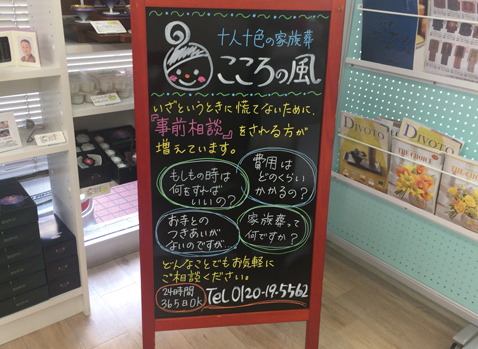 十人十色の家族葬
こころの風
いざというときに慌てないために、
『事前相談』をされる方が
増えています。
もしもの時は
何をすれば
いいの?
費用は
どのくらい
かかるの?
お寺との
つきあいが
ないのですが…
家族葬って
何ですか?
どんなことでもお気軽に
ご相談ください。
24時間
365日OK
Tel 0120-19-5562
DIVOTO
DIVOTO
THE CHOICE